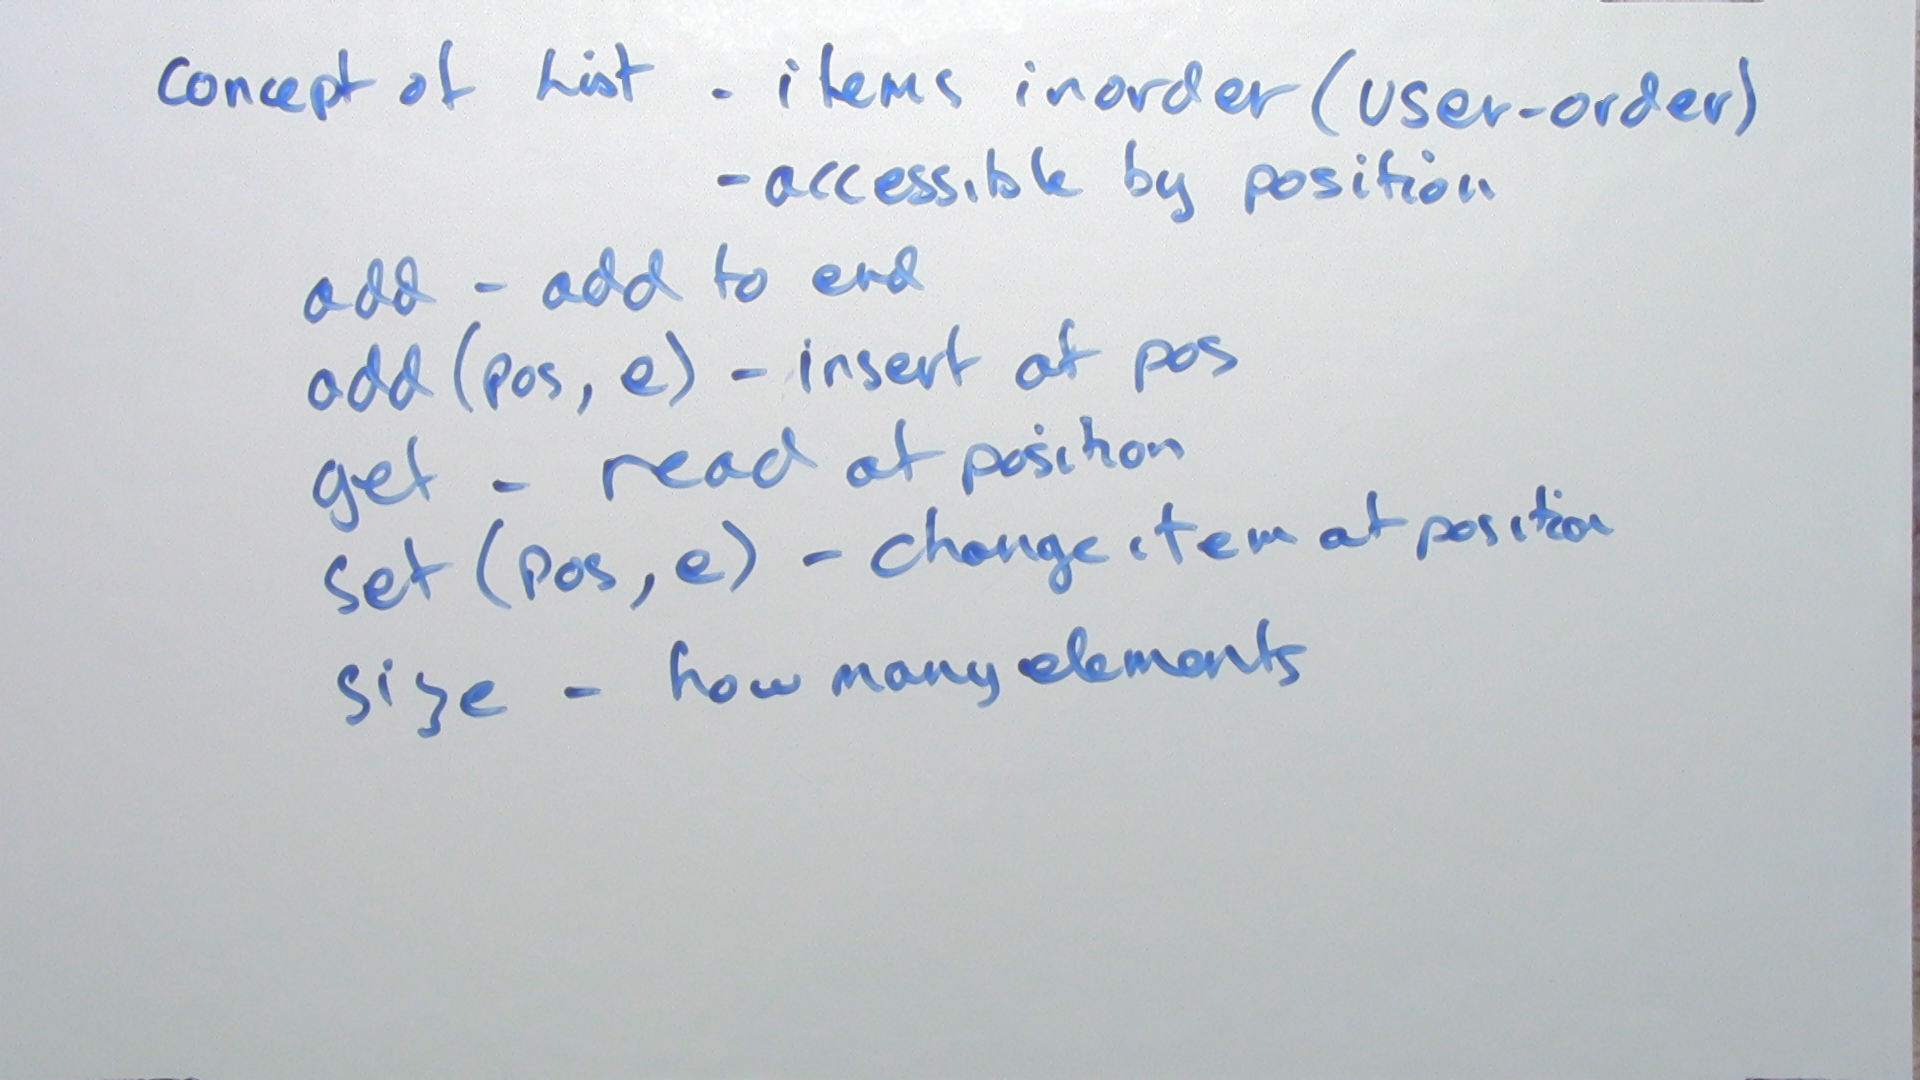 Concept of List - items inorder (user-order)
- accessible by position
add - add to end
add (pos, e) - insert at pos
get - read at position
set (pos, e) - change item at position
size - how many elements